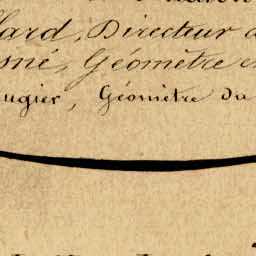 lard, Directeur d
sné, Géomètre e
ugier, Géomètre du